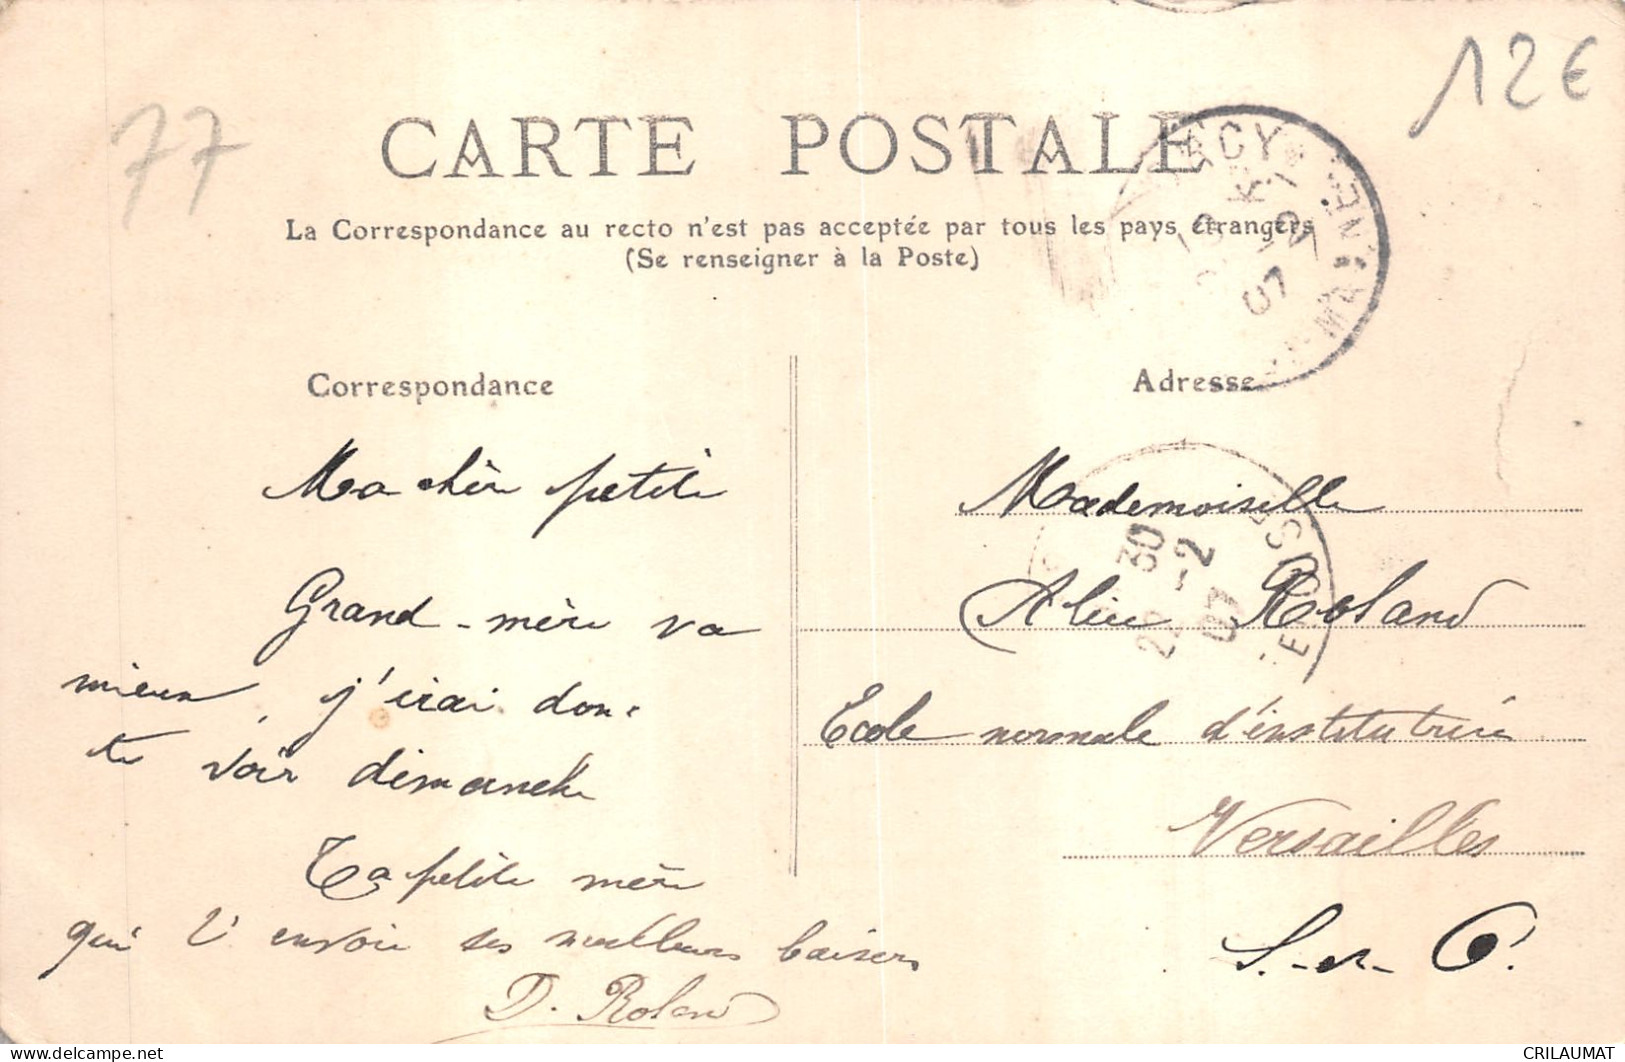 77
12€
CARTE POSTALE
La Correspondance au recto n'est pas acceptée par tous les pays étrangers
(Se renseigner à la Poste)
Correspondance
Ma chère petite
Grand-mère va
mieux, j'irai donc
te voir dimanche
Ta petite mère
qui t'envoie ses meilleurs baisers
D. Roland
Adresse
Mademoiselle
Roland
Ecole normale d'institutrices
Versailles
S.-et-O.
07
30
-2
07
CRILAUMAT